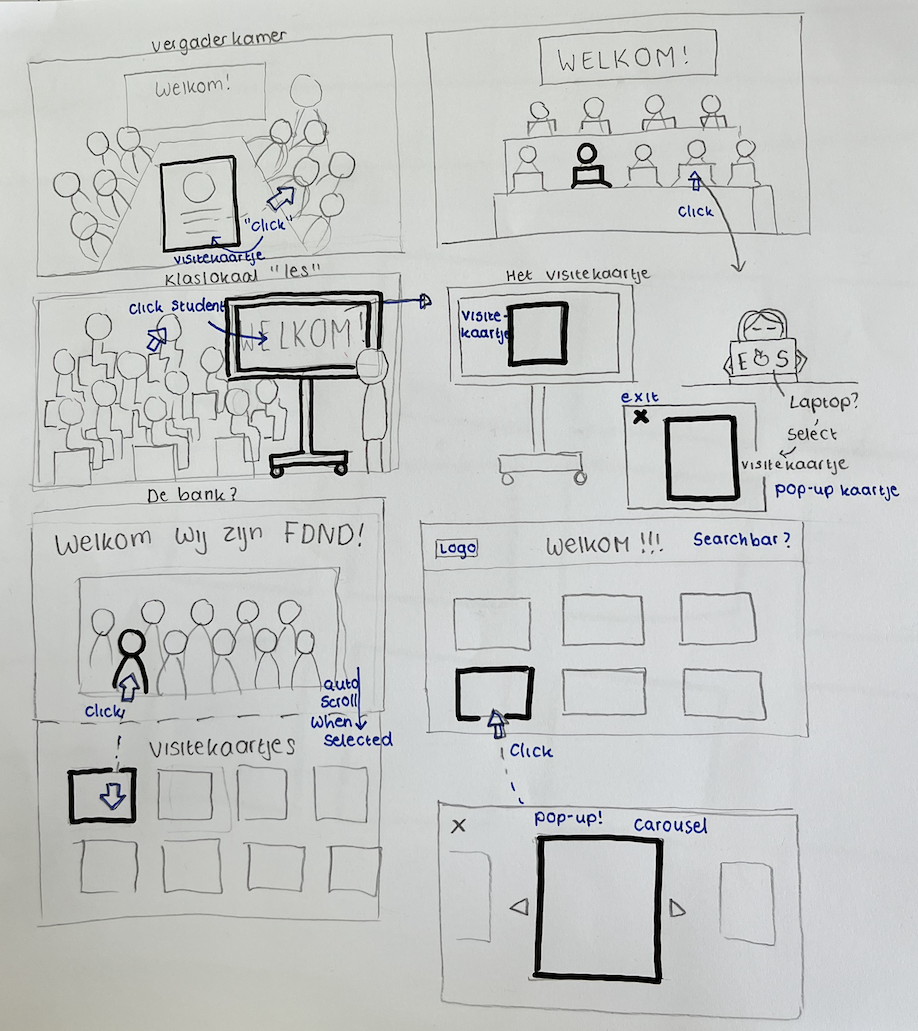 vergaderkamer
Welkom!
"click"
visitekaartje
WELKOM!
click
Klaslokaal "les"
click student
WELKOM!
Het visitekaartje
visite-
kaartje
E S
Laptop?
select
visitekaartje
exit
X
pop-up kaartje
De bank?
Welkom wij zijn FDND!
click
auto
scroll
when
selected
visitekaartjes
Logo
WELKOM !!!
Searchbar?
Click
X
pop-up!
carousel